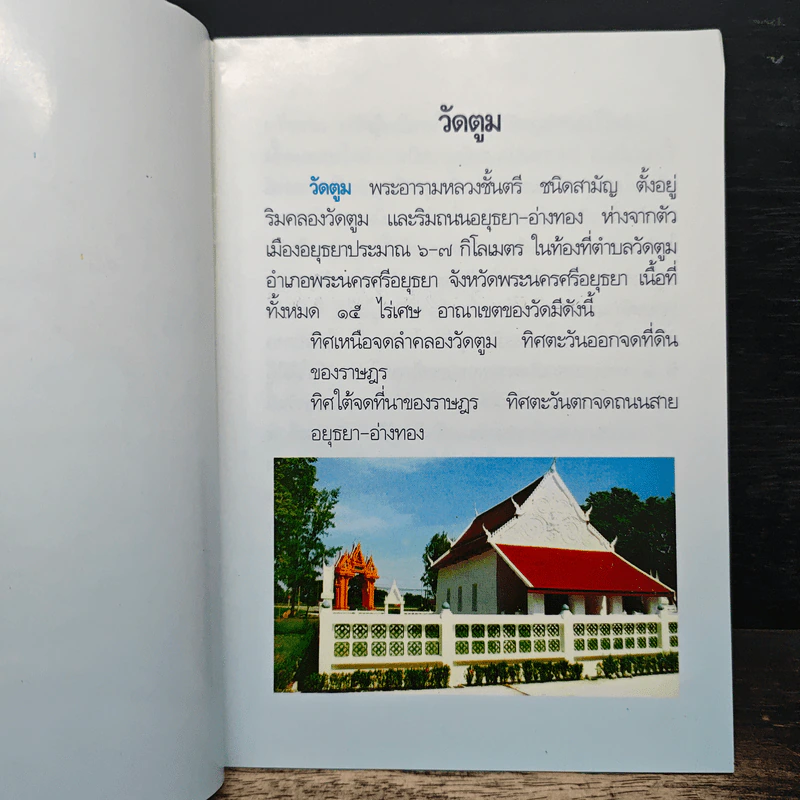 วัดตูม
วัดตูม พระอารามหลวงชั้นตรี ชนิดสามัญ ตั้งอยู่
ริมคลองวัดตูม และริมถนนอยุธยา-อ่างทอง ห่างจากตัว
เมืองอยุธยาประมาณ ๖-๗ กิโลเมตร ในท้องที่ตำบลวัดตูม
อำเภอพระนครศรีอยุธยา จังหวัดพระนครศรีอยุธยา เนื้อที่
ทั้งหมด ๑๕ ไร่เศษ อาณาเขตของวัดมีดังนี้
ทิศเหนือจดลำคลองวัดตูม ทิศตะวันออกจดที่ดิน
ของราษฎร
ทิศใต้จดที่นาของราษฎร ทิศตะวันตกจดถนนสาย
อยุธยา-อ่างทอง